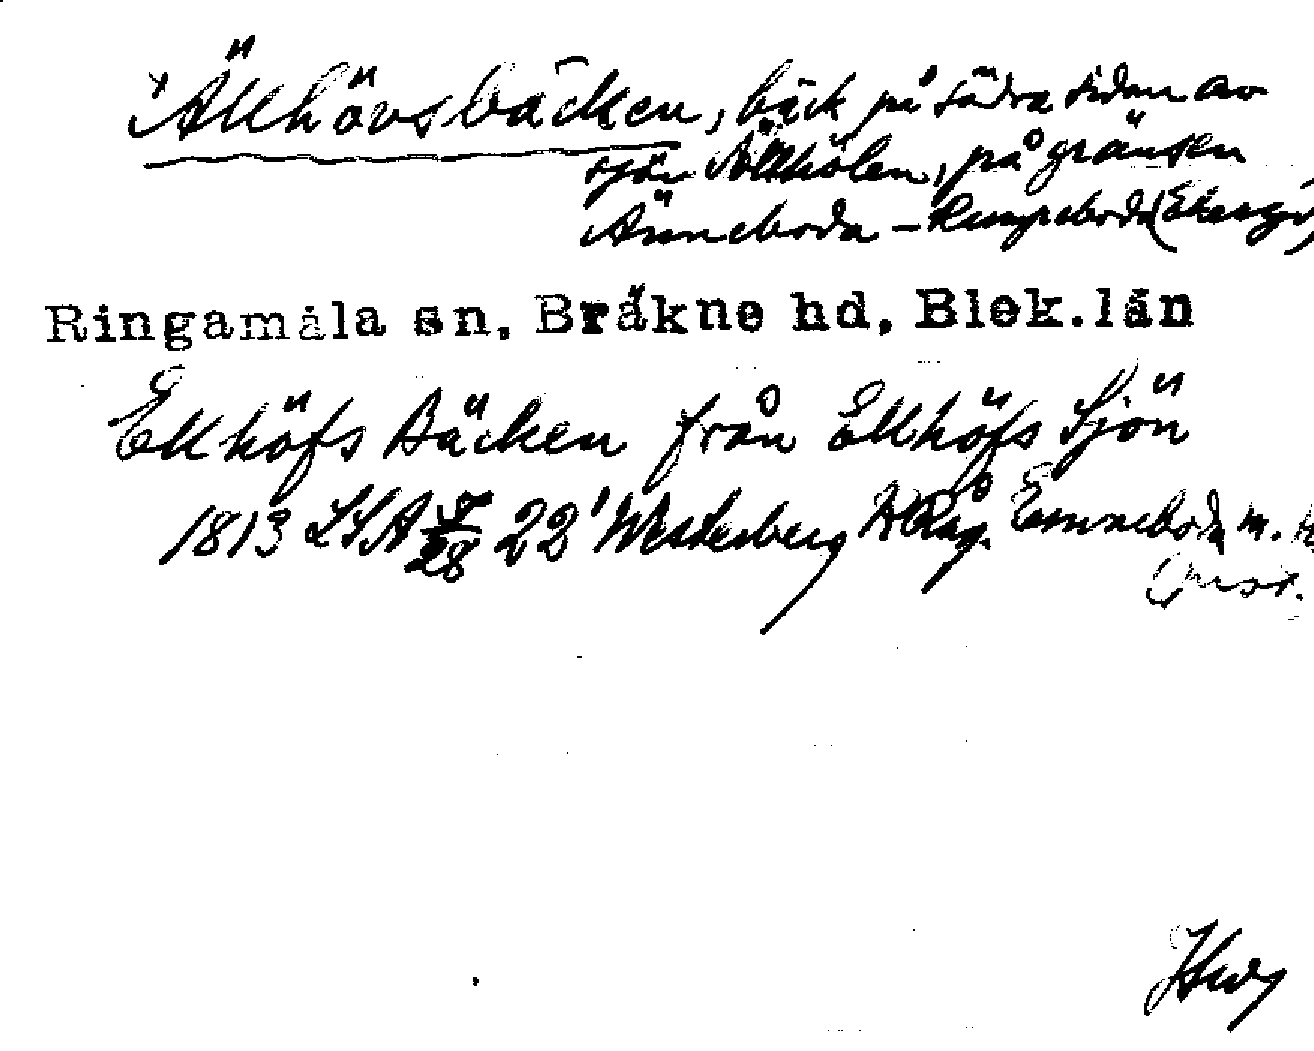 Ällhövsbäcken, bäck på södra sidan av
sjön Ällhölen, på gränsen
Änneboda - Rumpeboda
Ringamåla sn, Bräkne hd, Blek.län
Ellhöfs Bäcken från Ellhöfs Sjön
1813 LSA 22 Westerberg Emneboda m.